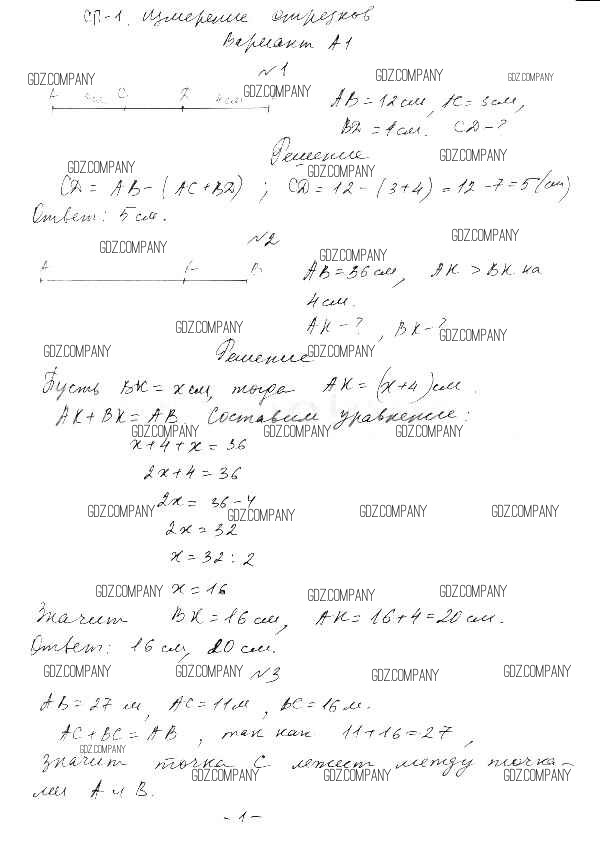 СП-1. Измерение отрезков
Вариант А1
№1
GDZ.COMPANY GDZ.COMPANY GDZ.COMPANY GDZ.COMPANY
A 3см C D 4см
AB = 12 см, AC = 3 см,
BD = 4 см. CD - ?
Решение GDZ.COMPANY
GDZ.COMPANY GDZ.COMPANY
CD = AB - (AC + BD) ; CD = 12 - (3+4) = 12 - 7 = 5 (см)
Ответ: 5 см.
GDZ.COMPANY №2 GDZ.COMPANY GDZ.COMPANY
A K B
AB = 36 см, AK > BK на
4 см.
GDZ.COMPANY AK - ?, BK - ? GDZ.COMPANY
GDZ.COMPANY Решение GDZ.COMPANY
Пусть BK = x см, тогда AK = (x+4) см.
AK + BK = AB. Составим уравнение:
GDZ.COMPANY GDZ.COMPANY GDZ.COMPANY
x + 4 + x = 36
2x + 4 = 36
2x = 36 - 4
GDZ.COMPANY GDZ.COMPANY GDZ.COMPANY GDZ.COMPANY
2x = 32
x = 32 : 2
GDZ.COMPANY x = 16 GDZ.COMPANY GDZ.COMPANY
Значит BK = 16 см, AK = 16 + 4 = 20 см.
Ответ: 16 см, 20 см.
GDZ.COMPANY GDZ.COMPANY №3 GDZ.COMPANY GDZ.COMPANY
AB = 27 м, AC = 11 м, BC = 16 м.
AC + BC = AB, так как 11 + 16 = 27,
GDZ.COMPANY
значит точка C лежит между точка-
GDZ.COMPANY GDZ.COMPANY GDZ.COMPANY
ми A и B.
- 1 -